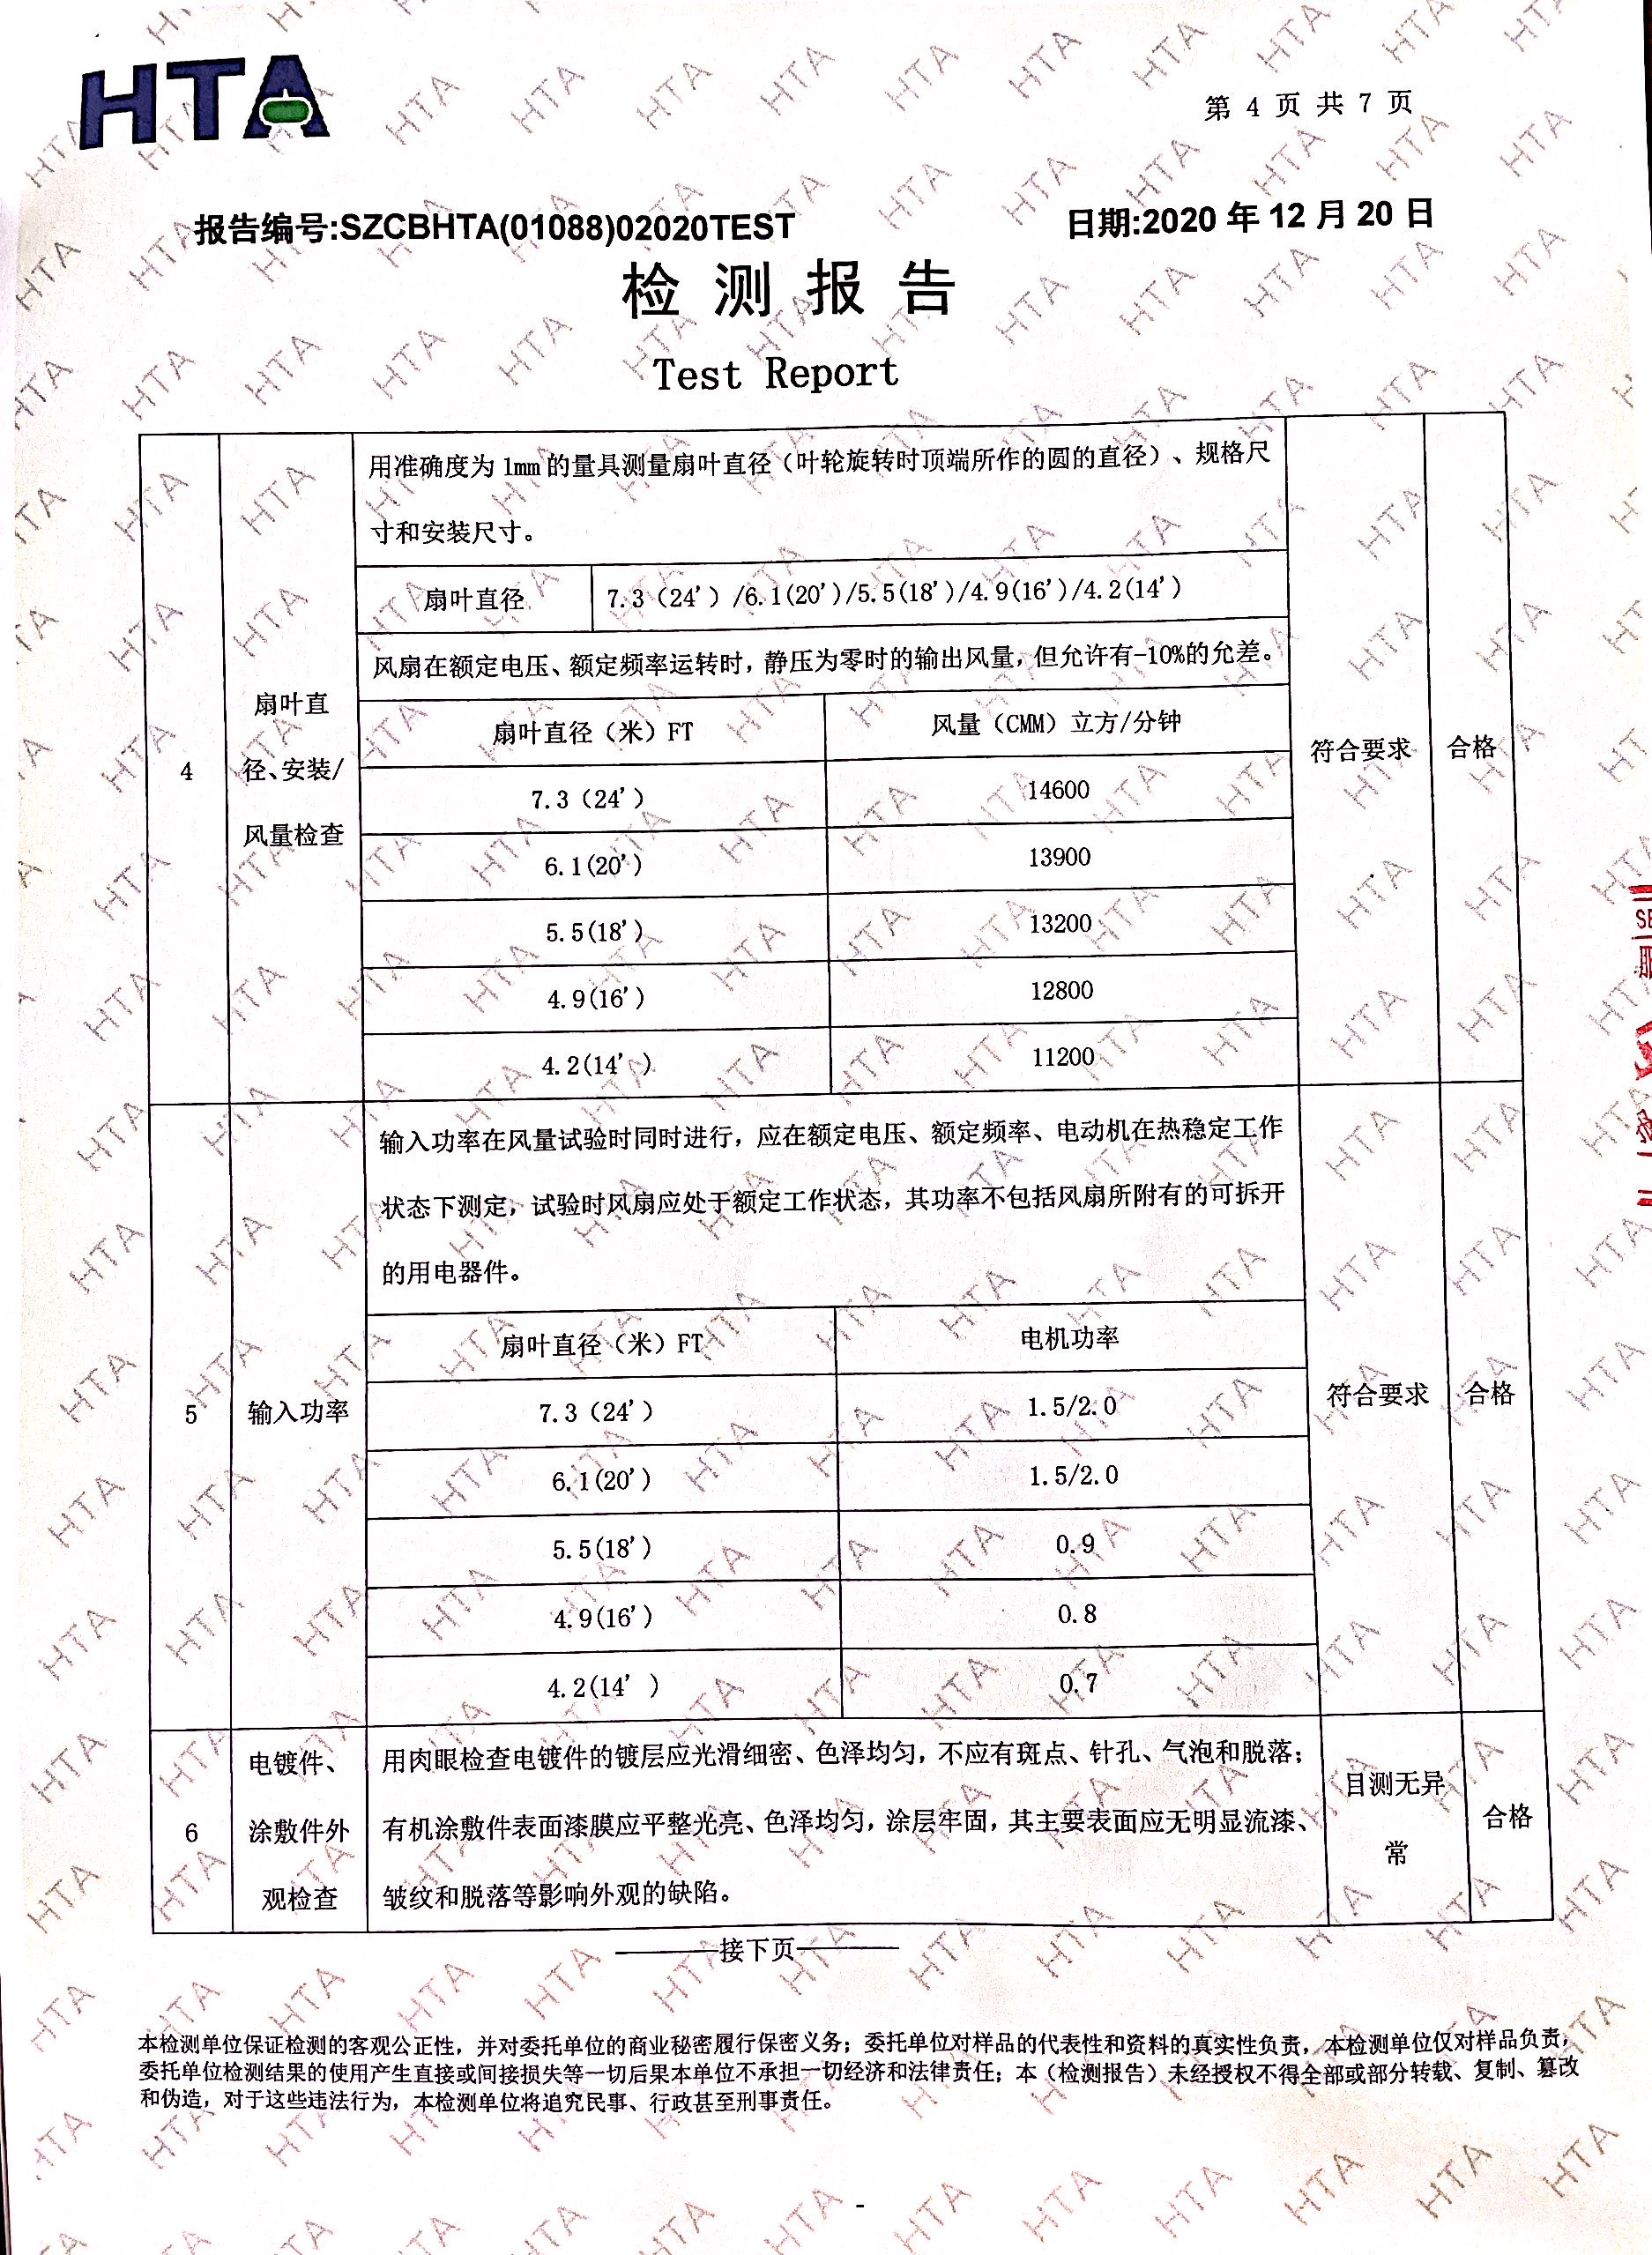 HTA
第 4 页 共 7 页
报告编号:SZCBHTA(01088)02020TEST
日期:2020 年 12 月 20 日
检 测 报 告
Test Report
4
扇叶直
径、安装/
风量检查
用准确度为 1mm 的量具测量扇叶直径（叶轮旋转时顶端所作的圆的直径）、规格尺
寸和安装尺寸。
扇叶直径
7.3（24'）/6.1(20')/5.5(18')/4.9(16')/4.2(14')
风扇在额定电压、额定频率运转时，静压为零时的输出风量，但允许有-10%的允差。
扇叶直径（米）FT
风量（CMM）立方/分钟
7.3（24'）
14600
6.1(20')
13900
5.5(18')
13200
4.9(16')
12800
4.2(14' )
11200
符合要求
合格
5
输入功率
输入功率在风量试验时同时进行，应在额定电压、额定频率、电动机在热稳定工作
状态下测定，试验时风扇应处于额定工作状态，其功率不包括风扇所附有的可拆开
的用电器件。
扇叶直径（米）FT
电机功率
7.3（24'）
1.5/2.0
6.1(20')
1.5/2.0
5.5(18')
0.9
4.9(16')
0.8
4.2(14' )
0.7
符合要求
合格
6
电镀件、
涂敷件外
观检查
用肉眼检查电镀件的镀层应光滑细密、色泽均匀，不应有斑点、针孔、气泡和脱落；
有机涂敷件表面漆膜应平整光亮、色泽均匀，涂层牢固，其主要表面应无明显流漆、
皱纹和脱落等影响外观的缺陷。
目测无异
常
合格
————接下页————
本检测单位保证检测的客观公正性，并对委托单位的商业秘密履行保密义务；委托单位对样品的代表性和资料的真实性负责，本检测单位仅对样品负责，
委托单位检测结果的使用产生直接或间接损失等一切后果本单位不承担一切经济和法律责任；本（检测报告）未经授权不得全部或部分转载、复制、篡改
和伪造，对于这些违法行为，本检测单位将追究民事、行政甚至刑事责任。